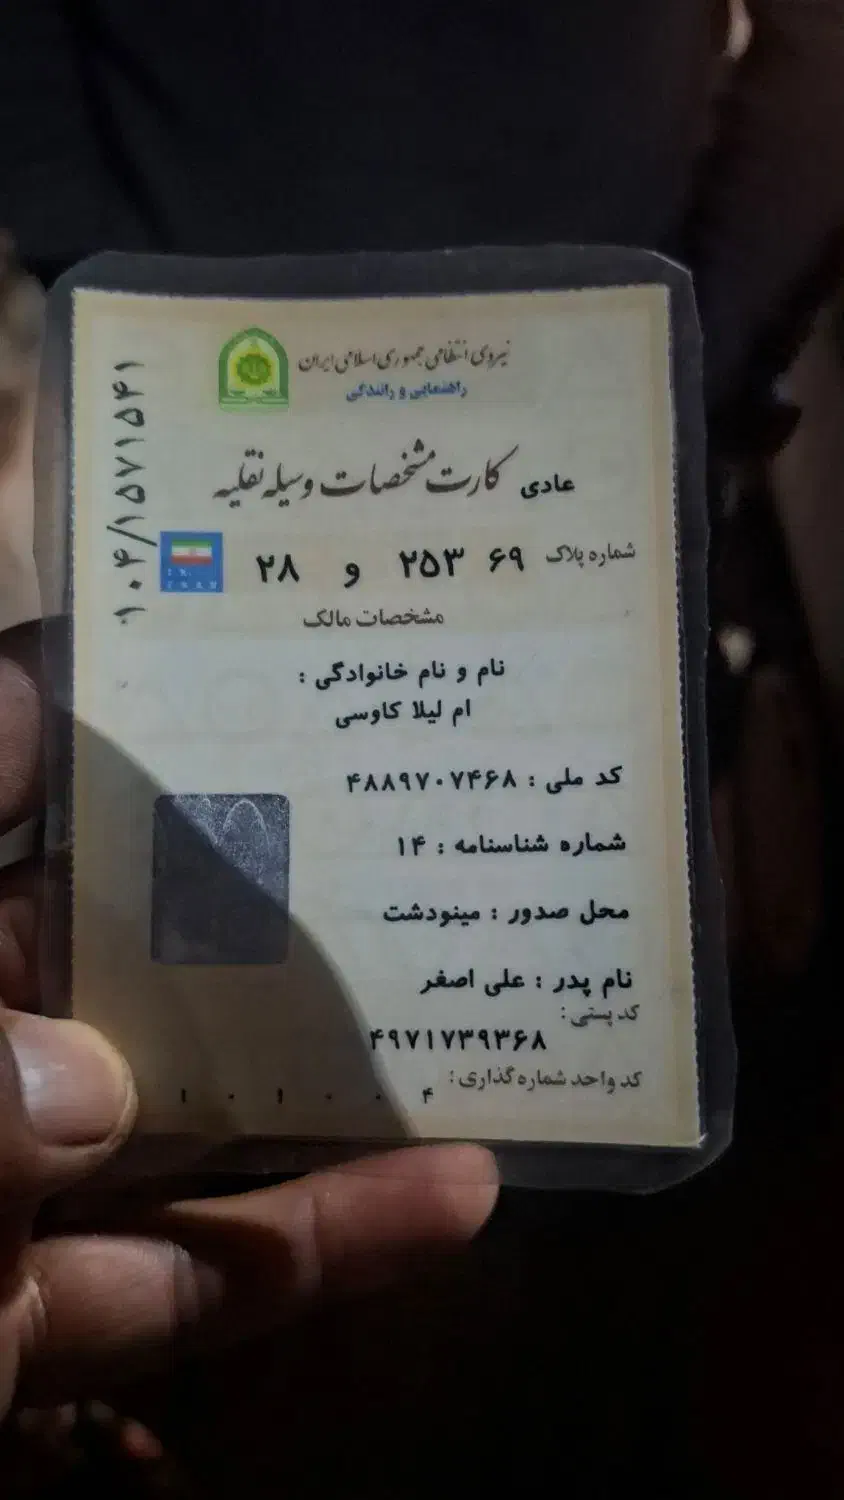 نیروی انتظامی جمهوری اسلامی ایران
راهنمایی و رانندگی
۱۰۴/۱۵۷۱۵۴۱
کارت مشخصات وسیله نقلیه عادی
شماره پلاک ۶۹ ۲۵۳ و ۲۸
I.R.
IRAN
مشخصات مالک
نام و نام خانوادگی :
ام لیلا کاوسی
کد ملی : ۴۸۸۹۷۰۷۴۶۸
شماره شناسنامه : ۱۴
محل صدور : مینودشت
نام پدر : علی اصغر
کد پستی:
۴۹۷۱۷۳۹۳۶۸
کد واحد شماره گذاری:
۱ ۰ ۱ ۰ ۰ ۴